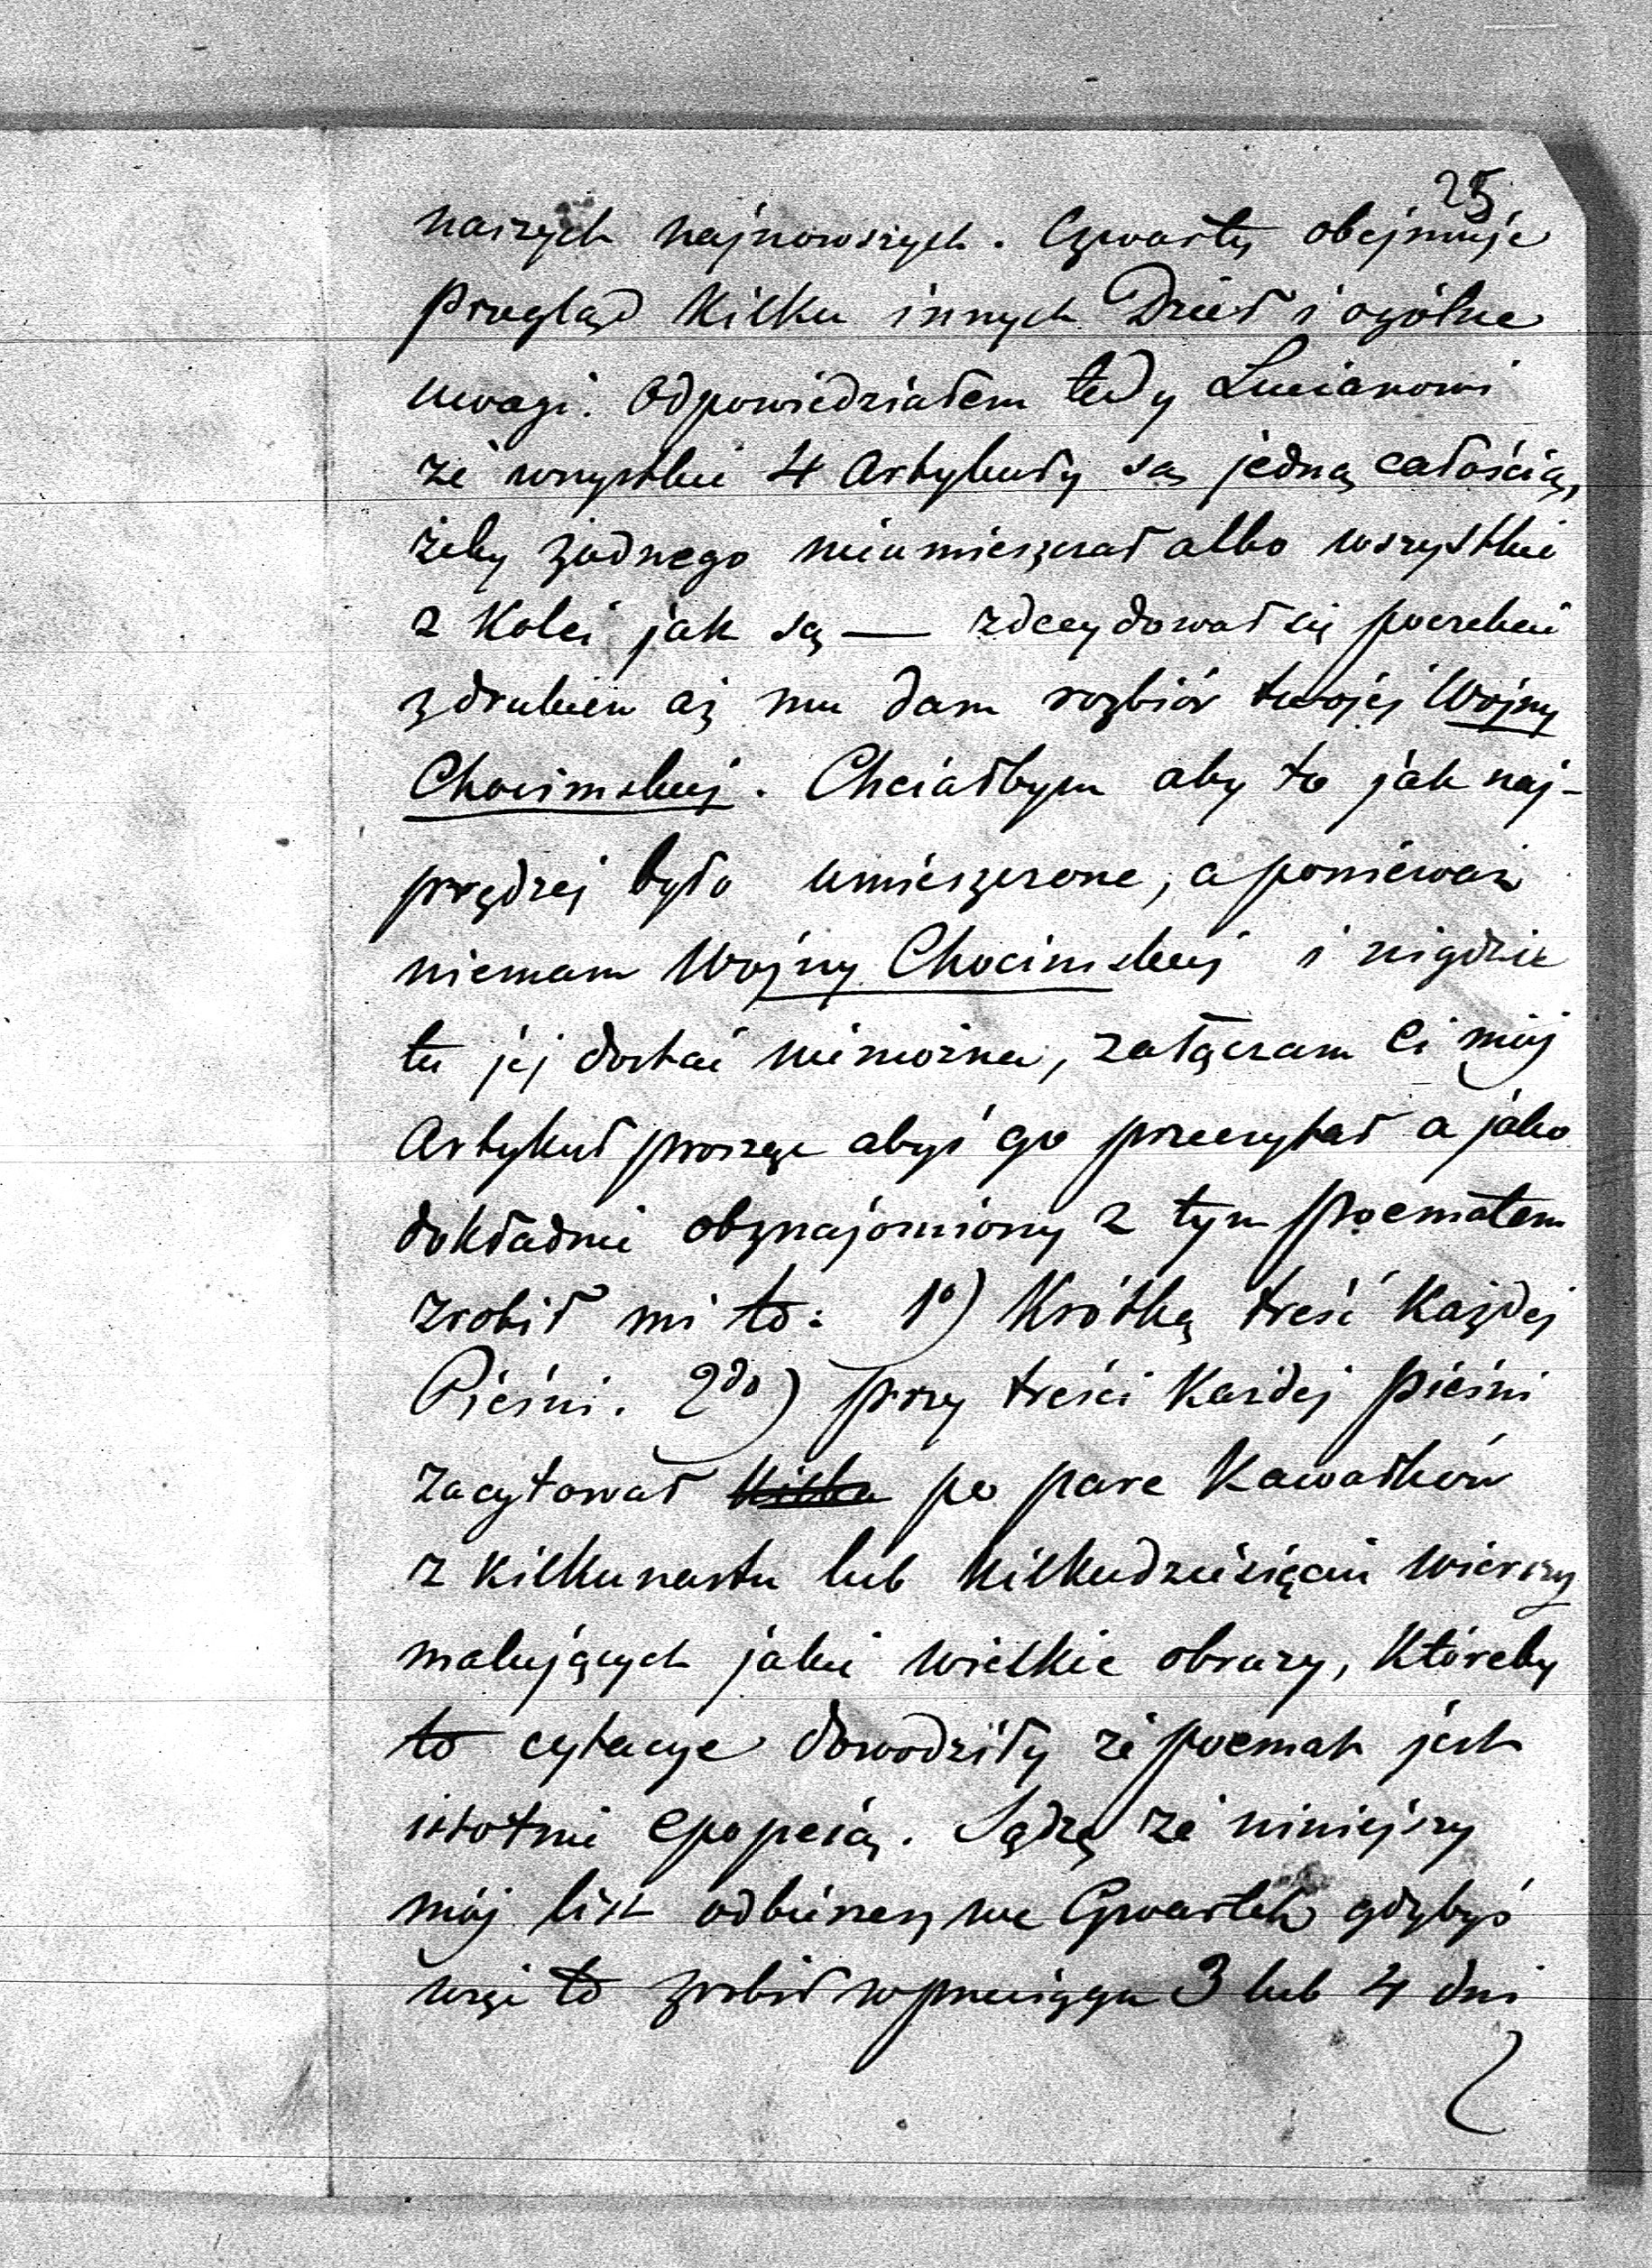 25
naszych najnowszych. Czwarty obejmuje
Przegląd Kilku innych Dzieł i ogólne
uwagi. Odpowiedziałem tedy Lucianowi
że wszystkie 4 Artykuły są jedną całością,
żeby żadnego nieumieszczał albo wszystkie
z Kolei jak są — zdecydował się poczekać
z drukiem aż mu dam rozbiór twojej Wojny
Chocimskiej. Chciałbym aby to jak naj-
prędzej było umieszczone, a ponieważ
niemam Wojny Chocimskiej i nigdzie
tu jej dostać niemożna, załączam Ci mój
Artykuł proszę abyś go przeczytał a jako
dokładnie obznajomiony z tym poematem
zrobił mi to: 1o) Krótką treść Każdej
Pieśni. 2do) przy treści Każdej pieśni
zacytował Kilka po pare Kawałków
z Kilkunastu lub Kilkudziesięciu wierszy
malujących jakie wielkie obrazy, Któreby
to cytacye dowodziły że poemat jest
istotnie epopeią. Sądzę że niniejszy
mój list odbierzesz we Czwartek gdybyś
więc to zrobił w przeciągu 3 lub 4 dni